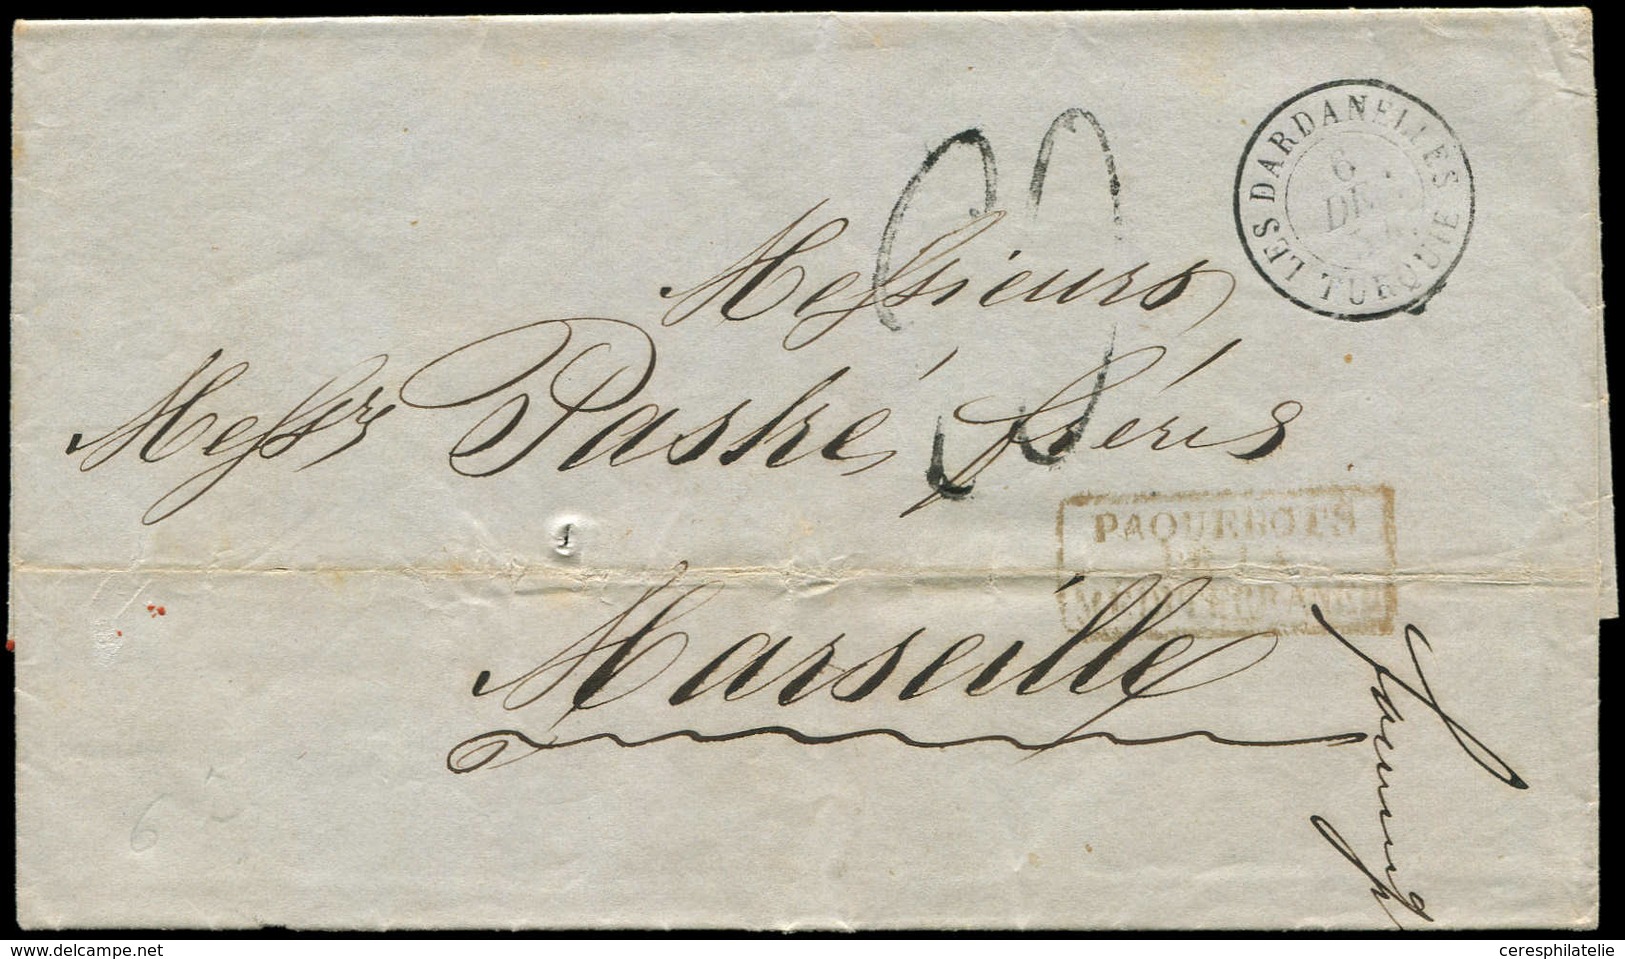 LES DARDANELLES
6
DEC.
TURQUIE
Messieurs
Messrs Pastré frères
PAQUEBOTS
DE LA
MEDITERRANEE
Marseille
6
delcampe.net
ceresphilatelie